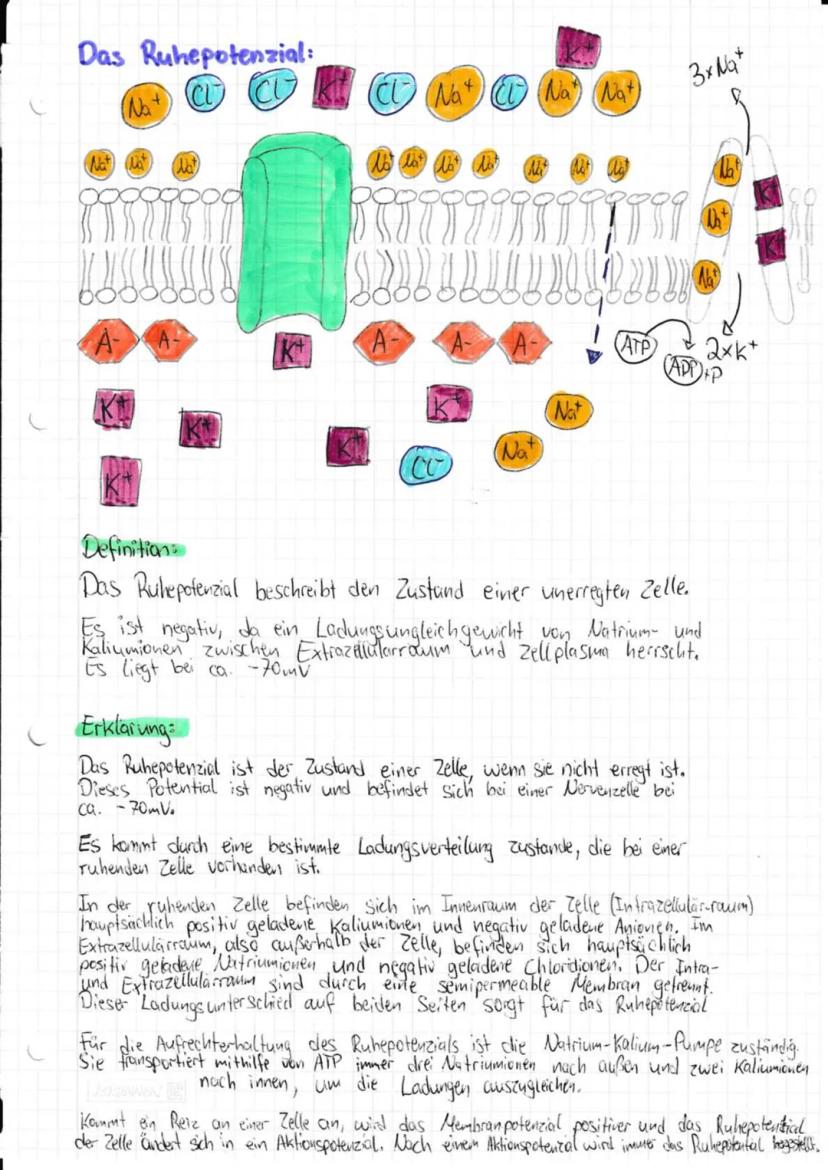 Das Ruhepotenzial:
K+
3xNa+
Na+ Cl- Cl- K+ Cl- Na+ Cl- Na+ Na+
Na+ Na+ Na+ Na+ Na+ Na+ Na+ Na+ Na+ Na+ Na+ K+
Na+ K+
Na+
A- A- K+ A- A- A- ATP ADP+P 2xK+
K+ K+ K+ K+ Na+
K+ Cl- Na+
Definition:
Das Ruhepotenzial beschreibt den Zustand einer unerregten Zelle.
Es ist negativ, da ein Ladungsungleichgewicht von Natrium- und
Kaliumionen zwischen Extrazellulärraum und Zellplasma herrscht.
Es liegt bei ca. -70mV
Erklärung:
Das Ruhepotenzial ist der Zustand einer Zelle, wenn sie nicht erregt ist.
Dieses Potential ist negativ und befindet sich bei einer Nervenzelle bei
ca. -70mV.
Es kommt durch eine bestimmte Ladungsverteilung zustande, die bei einer
ruhenden Zelle vorhanden ist.
In der ruhenden Zelle befinden sich im Innenraum der Zelle (Intrazellulär-raum)
hauptsächlich positiv geladene Kaliumionen und negativ geladene Anionen. Im
Extrazellulärraum, also außerhalb der Zelle, befinden sich hauptsächlich
positiv geladene Natriumionen und negativ geladene Chloridionen. Der Intra-
und Extrazellulärraum sind durch eine semipermeable Membran getrennt.
Dieser Ladungsunterschied auf beiden Seiten sorgt für das Ruhepotenzial
Für die Aufrechterhaltung des Ruhepotenzials ist die Natrium-Kalium-Pumpe zuständig.
Sie transportiert mithilfe von ATP immer drei Natriumionen nach außen und zwei Kaliumionen
nach innen, um die Ladungen auszugleichen.
Kommt ein Reiz an einer Zelle an, wird das Membranpotenzial positiver und das Ruhepotential
der Zelle ändert sich in ein Aktionspotenzial. Nach einem Aktionspotenzial wird immer das Ruhepotential